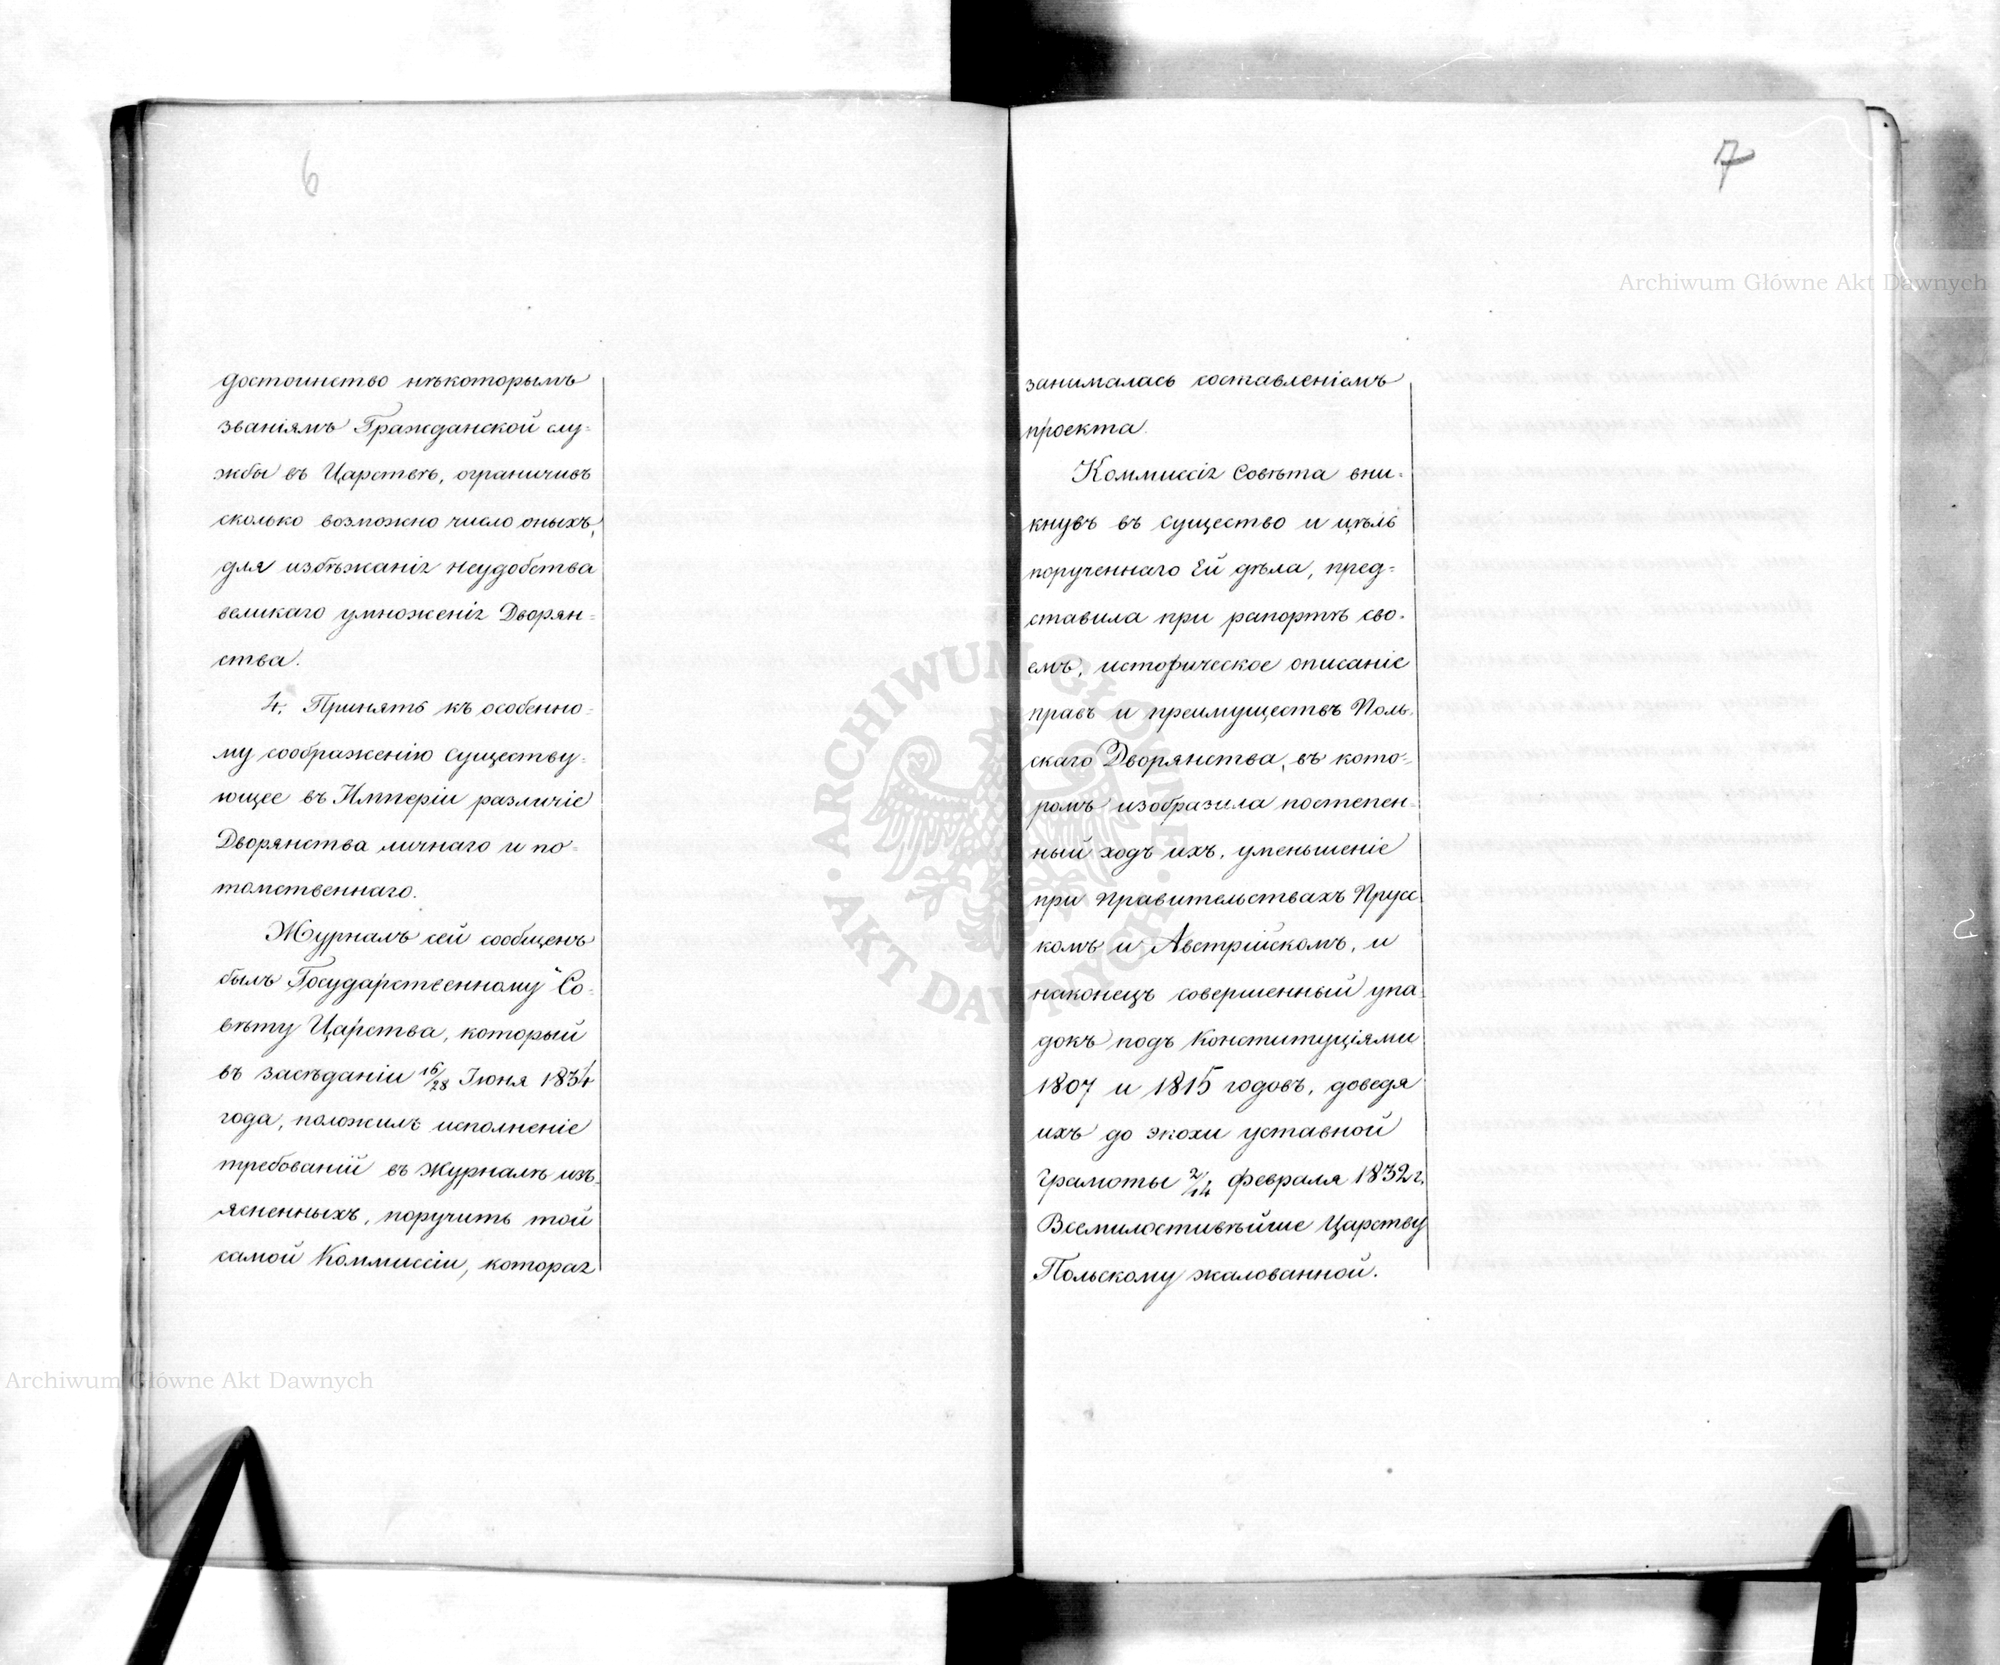 6
достоинство нѣкоторымъ
званіямъ Гражданской слу-
жбы въ Царствѣ, ограничивъ
сколько возможно число оныхъ,
для избѣжанія неудобства
великаго умноженія Дворян-
ства.
4. Принять къ особенно-
му соображенію существу-
ющее въ Имперіи различіе
Дворянства личнаго и по-
томственнаго.
Журналъ сей сообщенъ
былъ Государственному Со-
вѣту Царства, который
въ засѣданіи 16/28 Іюня 1834
года, положилъ исполненіе
требованій въ журналѣ изъ-
ясненныхъ, поручить той
самой Коммиссіи, которая
7
занималась составленіемъ
проекта.
Коммиссія Совѣта вни-
кнувъ въ существо и цѣль
порученнаго Ей дѣла, пред-
ставила при рапортѣ сво-
емъ, историческое описаніе
правъ и преимуществъ Поль-
скаго Дворянства, въ кото-
ромъ изобразила постепен-
ный ходъ ихъ, уменьшеніе
при Правительствахъ Прусс
комъ и Австрійскомъ, и
наконецъ совершенный упа-
докъ подъ Конституціями
1807 и 1815 годовъ, доведя
ихъ до эпохи уставной
Грамоты 2/14 февраля 1832 г.
Всемилостивѣйше Царству
Польскому жалованной.
Archiwum Główne Akt Dawnych
ARCHIWUM GŁÓWNE · AKT DAWNYCH ·
Archiwum Główne Akt Dawnych